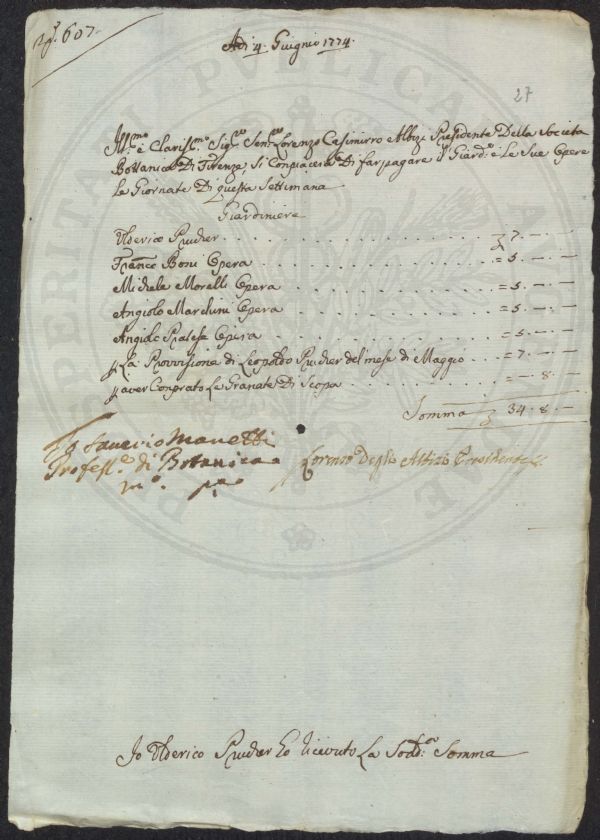 607
Adi 4. Guignio 1774.
27
Ill.mo e Clariss.mo Sig.re Sen.re Lorenzo Casimirro Albizi Presidente Della Societa
Bottanica Di Firenze, si Conpiacera Di far pagare il Giard.e e Le Sue Opere
Le Giornate Di questa Settimana
Giardiniere
Ulderico Prucher . . . 7. — —
Fran.co Boni Opera . . . = 5. — —
Michele Morelli Opera . . . = 5. — —
Angiolo Marchini Opera . . . = 5. — —
Angiolo Pratese Opera . . . = 5. — —
p La Provvisione di Leopoldo Prucher del mese di Maggio . . . = 7. — —
p aver Conprato Le Granate Di Scopa . . . = — 8. —
Somma 34. 8. —
Io Saverio Manetti
Profess.e di Botanica
m.o p.a
Lorenzo Degli Albizi Presidente
Io Ulderico Prucher ho ricevuto La Sodd.a Somma